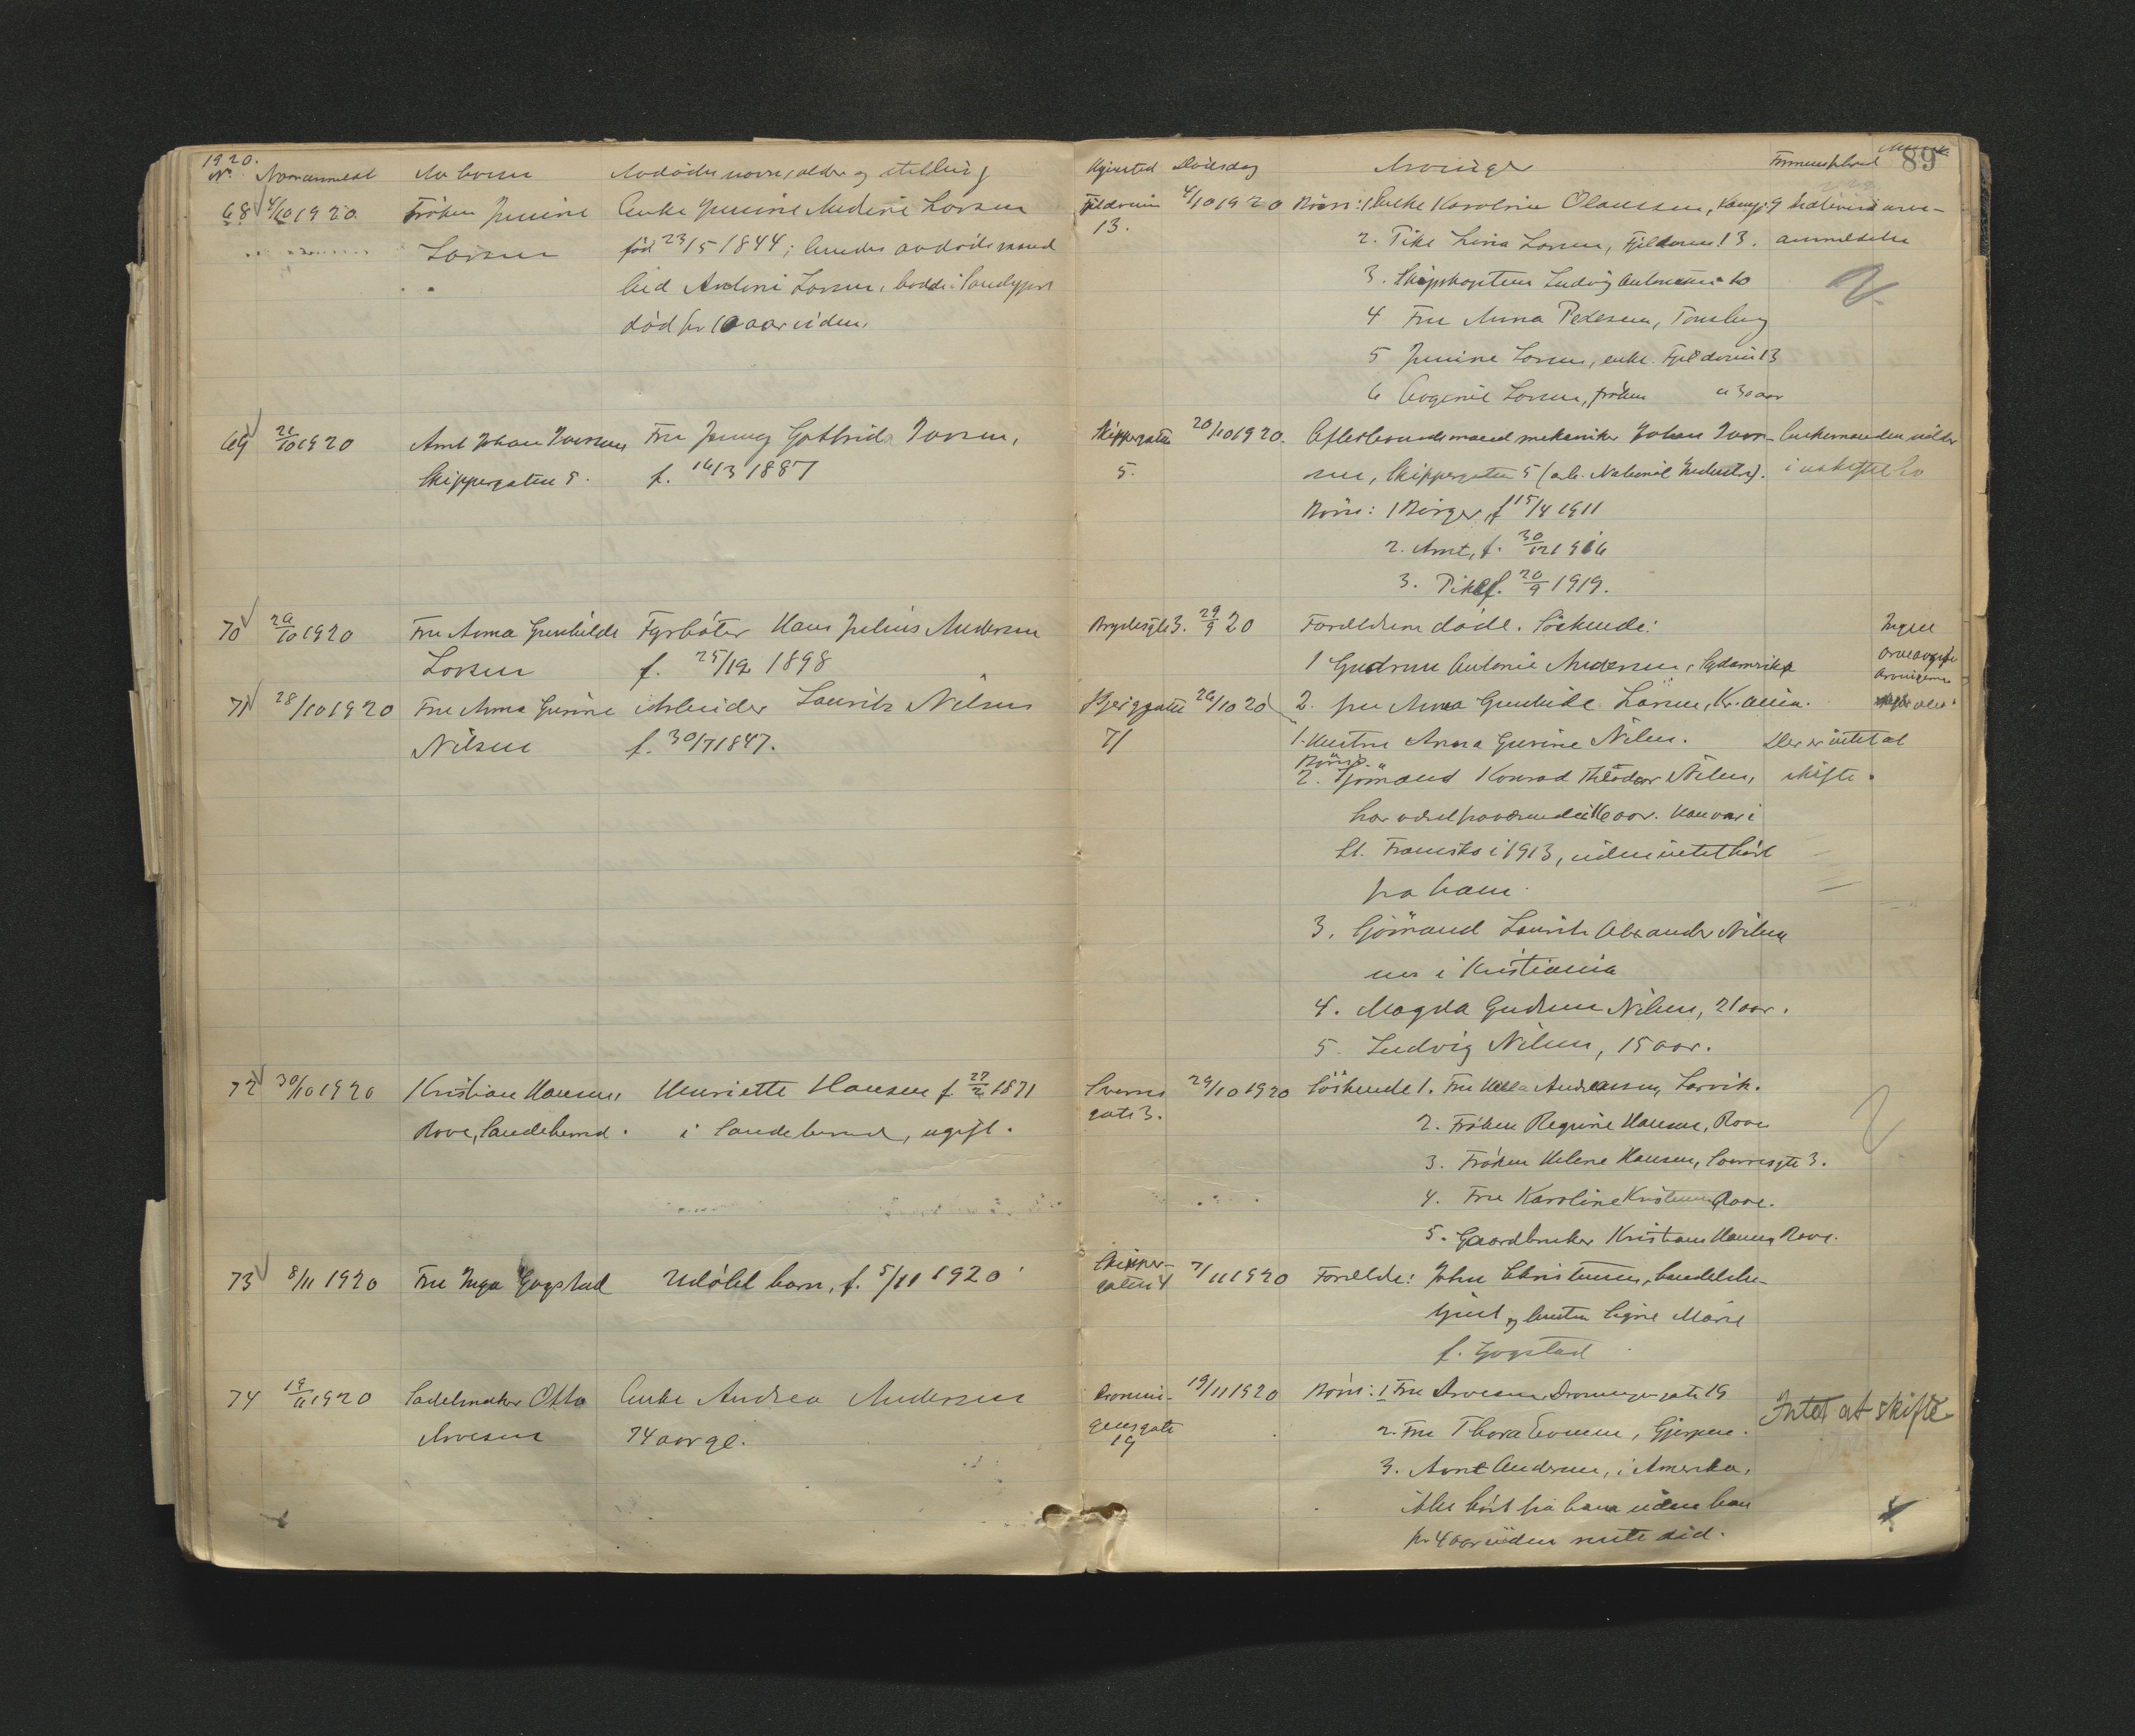 1920.
Nr. Naar anmeldt Av hvem Avdødes navn, alder og stilling Hjemsted Dødsdag Arvinger Formuesforhold 89
68 4/10 1920 Frøken Junine Enke Junine Andrine Larsen Fjeldveien 4/10 1920 Børn: 1 Enke Karoline Olaussen, Kamp. 9
Larsen født 23/5 1844; hendes avdøde mand 13. 2. Pike Lina Larsen, Fjeldveien 13. anmeldelse
hed Anton Larsen, bodde i Sandefjord 3. Skipskaptein Ludvig
død for 10 aar siden. 4 Fru Anna Pedersen, Tønsberg
5 Junine Larsen, enke. Fjeldveien 13
6 Larsen, frøken 30 aar
69 21/10 1920 Arnt Johan Iversen Fru Jenny Gothrid Iversen, Skippergaten 20/10 1920. Efterlevende mand mekaniker Johan Iver- Enkemanden sidder
Skippergaten 5. f. 16/3 1887 5. sen, Skippergaten 5 (arb. National Industri). i uskiftet bo
Børn: 1 Birger, f 15/4 1911
2. Arnt, f. 30/12 1916
3. Pike f. 20/9 1919.
70 26/10 1920 Fru Anna Gunhilde Fyrbøter Hans Julius Andersen Brydesgt 3. 29/9 20 Forældrene døde. Søskende: Ingen
Larsen f. 25/12 1898 1 Gudrun Antonie Andersen, Sydamerika arveavgift
71 28/10 1920 Fru Anna Gurine Arbeider Lauritz Nilsen Bjerggata 26/10 20 2. fru Anna Gunhilde Larsen, Kr.ania. Arvingerne
Nilsen f. 30/7 1847. 71 1. Hustru Anna Gurine Nilsen. Der er intet at
Børn:
2. Sjømand Konrad Theodor Nilsen, skifte.
har været fraværende i 16 aar. Han var i
St. Fransisko i 1913, siden intet hørt
fra ham.
3. Sjømand Lauritz Alexander Nilsen
i Kristiania
4. Magda Gudrun Nilsen, 21 aar.
5. Ludvig Nilsen, 15 aar.
72 30/10 1920 Kristian Hansen, Henriette Hansen f. 27/2 1871 Sverres 29/10 1920 Søskende 1. Fru Andreassen, Larvik.
Rove, Sandeherred. i Sandeherred, ugift. gate 3. 2. Frøken Regine Hansen, Rove
3. Frøken Helene Hansen, Sverresgt 3.
4. Fru Karoline Kristensen Rove.
5. Gaardbruker Kristian Hansen Rove.
73 8/11 1920 Fru Inga Gogstad Udøbt barn, f. 5/11 1920 Skipper- 7/11 1920 Forældre: John Christensen, handelsbe-
gaten 4 tjent og hustru Signe Marie
f. Gogstad
74 19/11 1920 Sadelmaker Otto Enke Andrea Andersen Dronnin- 19/11 1920 Børn: 1 Fru Arvesen Dronningensgate 19 Intet at skifte
Arvesen 74 aar gl. gensgate 2. Fru Thora Evensen, Gjerpen.
19 3. Arnt Andersen, i Amerika,
ikke hørt fra ham siden han
for 4 aar siden reiste did.